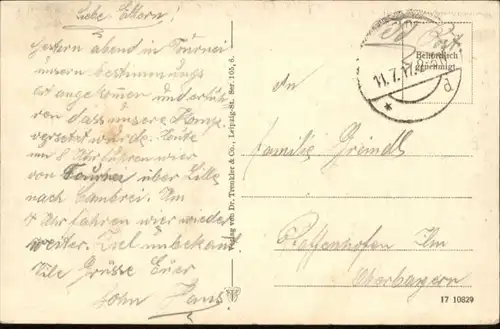 Liebe Eltern!
Gestern abend in Tournei
unsern bestimmungs
ort angekommen und erfuh
ren dass unsere Komp.
versetzt wurde. Heute
um 8 Uhr fuhren wier
von Tournei über Lille
nach Cambrei. Um
4 Uhr fahren wier wieder
weiter. Ziel unbekannt
Viele Grüsse Euer
Sohn Hans
Verlag von Dr. Trenkler & Co., Leipzig-St. Ser. 105, 6.
Post
Behördlich
genehmigt
11.7.17.
d
An
Familie Greindl
Pfaffenhofen Ilm
Oberbayern
17 10829